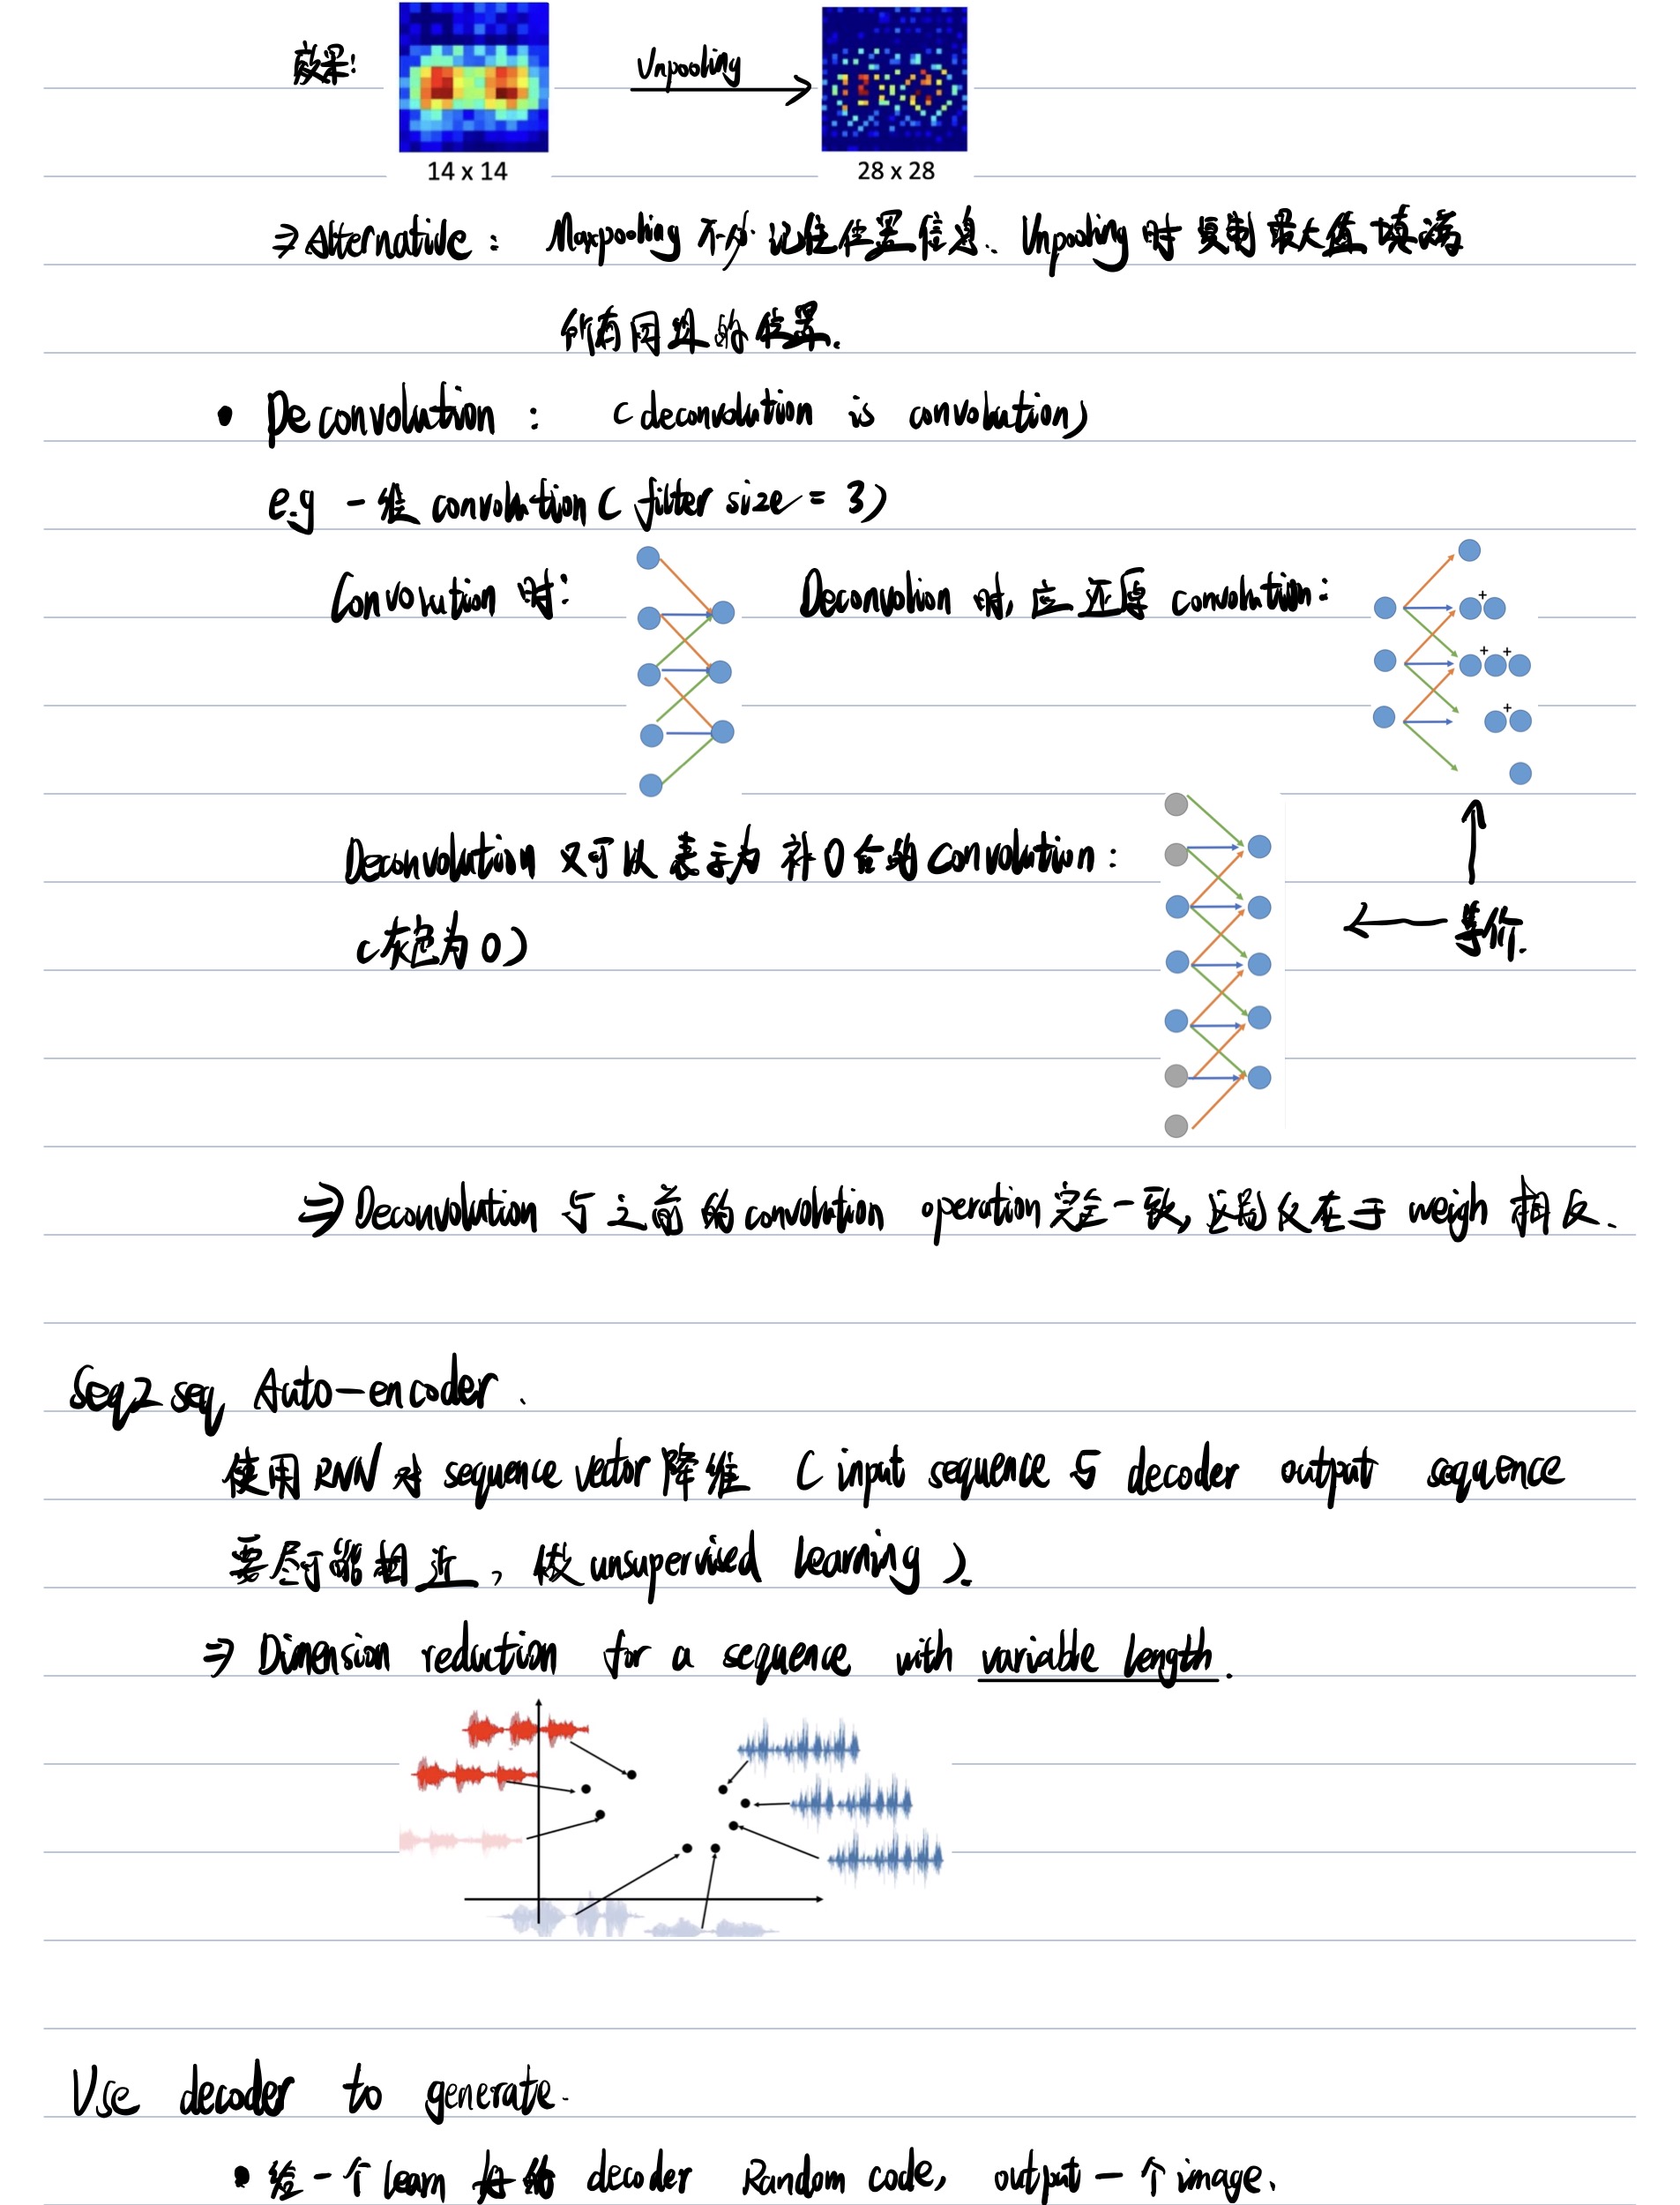 效果: Unpooling
14 x 14 28 x 28
⇒ Alternative: Maxpooling 不必记住位置信息. Unpooling 时复制最大值填满
所有同组的位置.
• Deconvolution: (deconvolution is convolution)
e.g 一维 convolution (filter size = 3)
Convolution 时: Deconvoltion 时, 应还原 convolution:
+
+ +
+
Deconvolution 又可以表示为补0后的 convolution:
(灰色为0) ← 等价.
⇒ Deconvolution 与之前的 convolution operation 完全一致, 区别仅在于 weigh 相反.
Seq2seq Auto-encoder.
使用 RNN 对 sequence vector 降维 (input sequence 与 decoder output sequence
要尽可能相近, 做 unsupervised learning).
⇒ Dimension reduction for a sequence with variable length.
Use decoder to generate.
• 给一个 learn 好的 decoder Random code, output 一个 image.